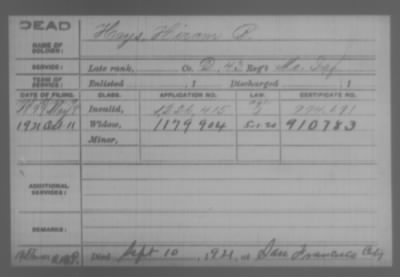 DEAD
NAME OF SOLDIER: Hays, Hiram P.
SERVICE: Late rank, Co. D, 43 Reg't Mo. Inf
TERM OF SERVICE: Enlisted , 1 Discharged , 1
DATE OF FILING. CLASS. APPLICATION NO. LAW. CERTIFICATE NO.
Invalid,
1921 Oct 11 Widow, 1179904 5-1-20 910783
Minor,
ADDITIONAL SERVICES:
REMARKS:
Died Sept 10, 1921, at San Francisco